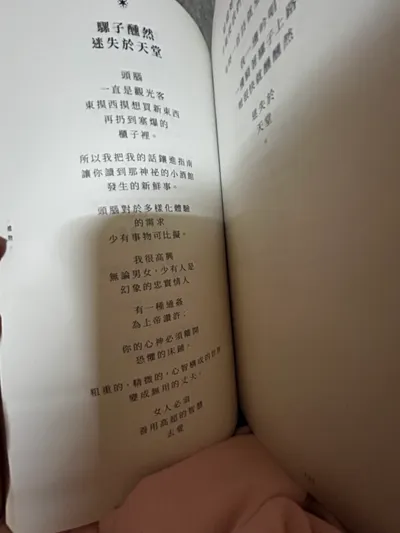 驛子醺然
迷失於天堂
頭腦
一直是觀光客
東摸西摸想買新東西
再扔到塞爆的
櫃子裡。
所以我把我的話鑲進指南
讓你讀到那神祕的小酒館
發生的新鮮事。
頭腦對於多樣化體驗
的需求
少有事物可比擬。
我很高興
無論男女，少有人是
幻象的忠實情人
有一種通姦
為上帝讚許：
你的心神必須離開
恐懼的床鋪。
粗重的、精微的，心智構成的世界
變成無用的丈夫。
女人必須
善用高超的智慧
去愛
迷失於
天堂
。